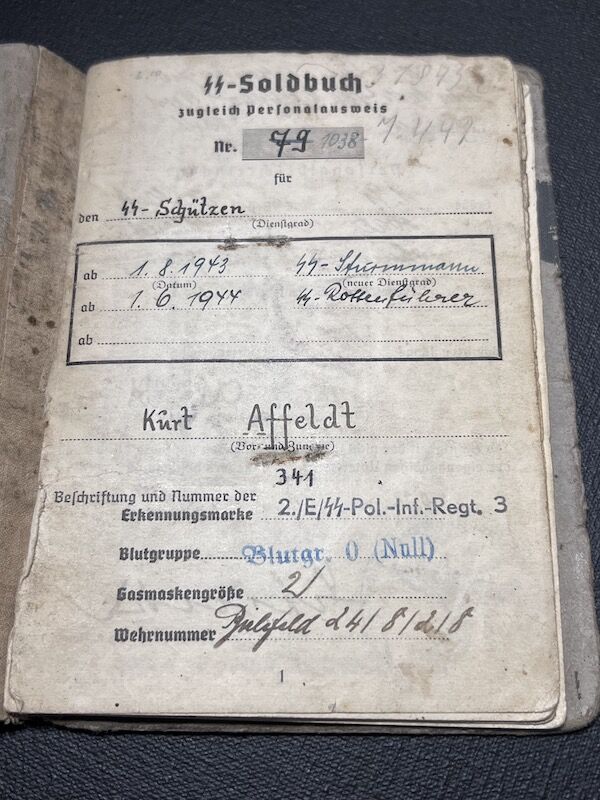 ᛋᛋ-Soldbuch
zugleich Personalausweis
Nr. 79 1038
für
den ᛋᛋ-Schützen
(Dienstgrad)
ab 1.8.1943 ᛋᛋ-Sturmmann
(Datum) (neuer Dienstgrad)
ab 1.6.1944 ᛋᛋ-Rottenführer
ab
Kurt Affeldt
(Vor- und Zuname)
341
Beschriftung und Nummer der
Erkennungsmarke 2./E/ᛋᛋ-Pol.-Inf.-Regt. 3
Blutgruppe Blutgr. 0 (Null)
Gasmaskengröße 2
Wehrnummer Bielefeld 24/8/2/8
1